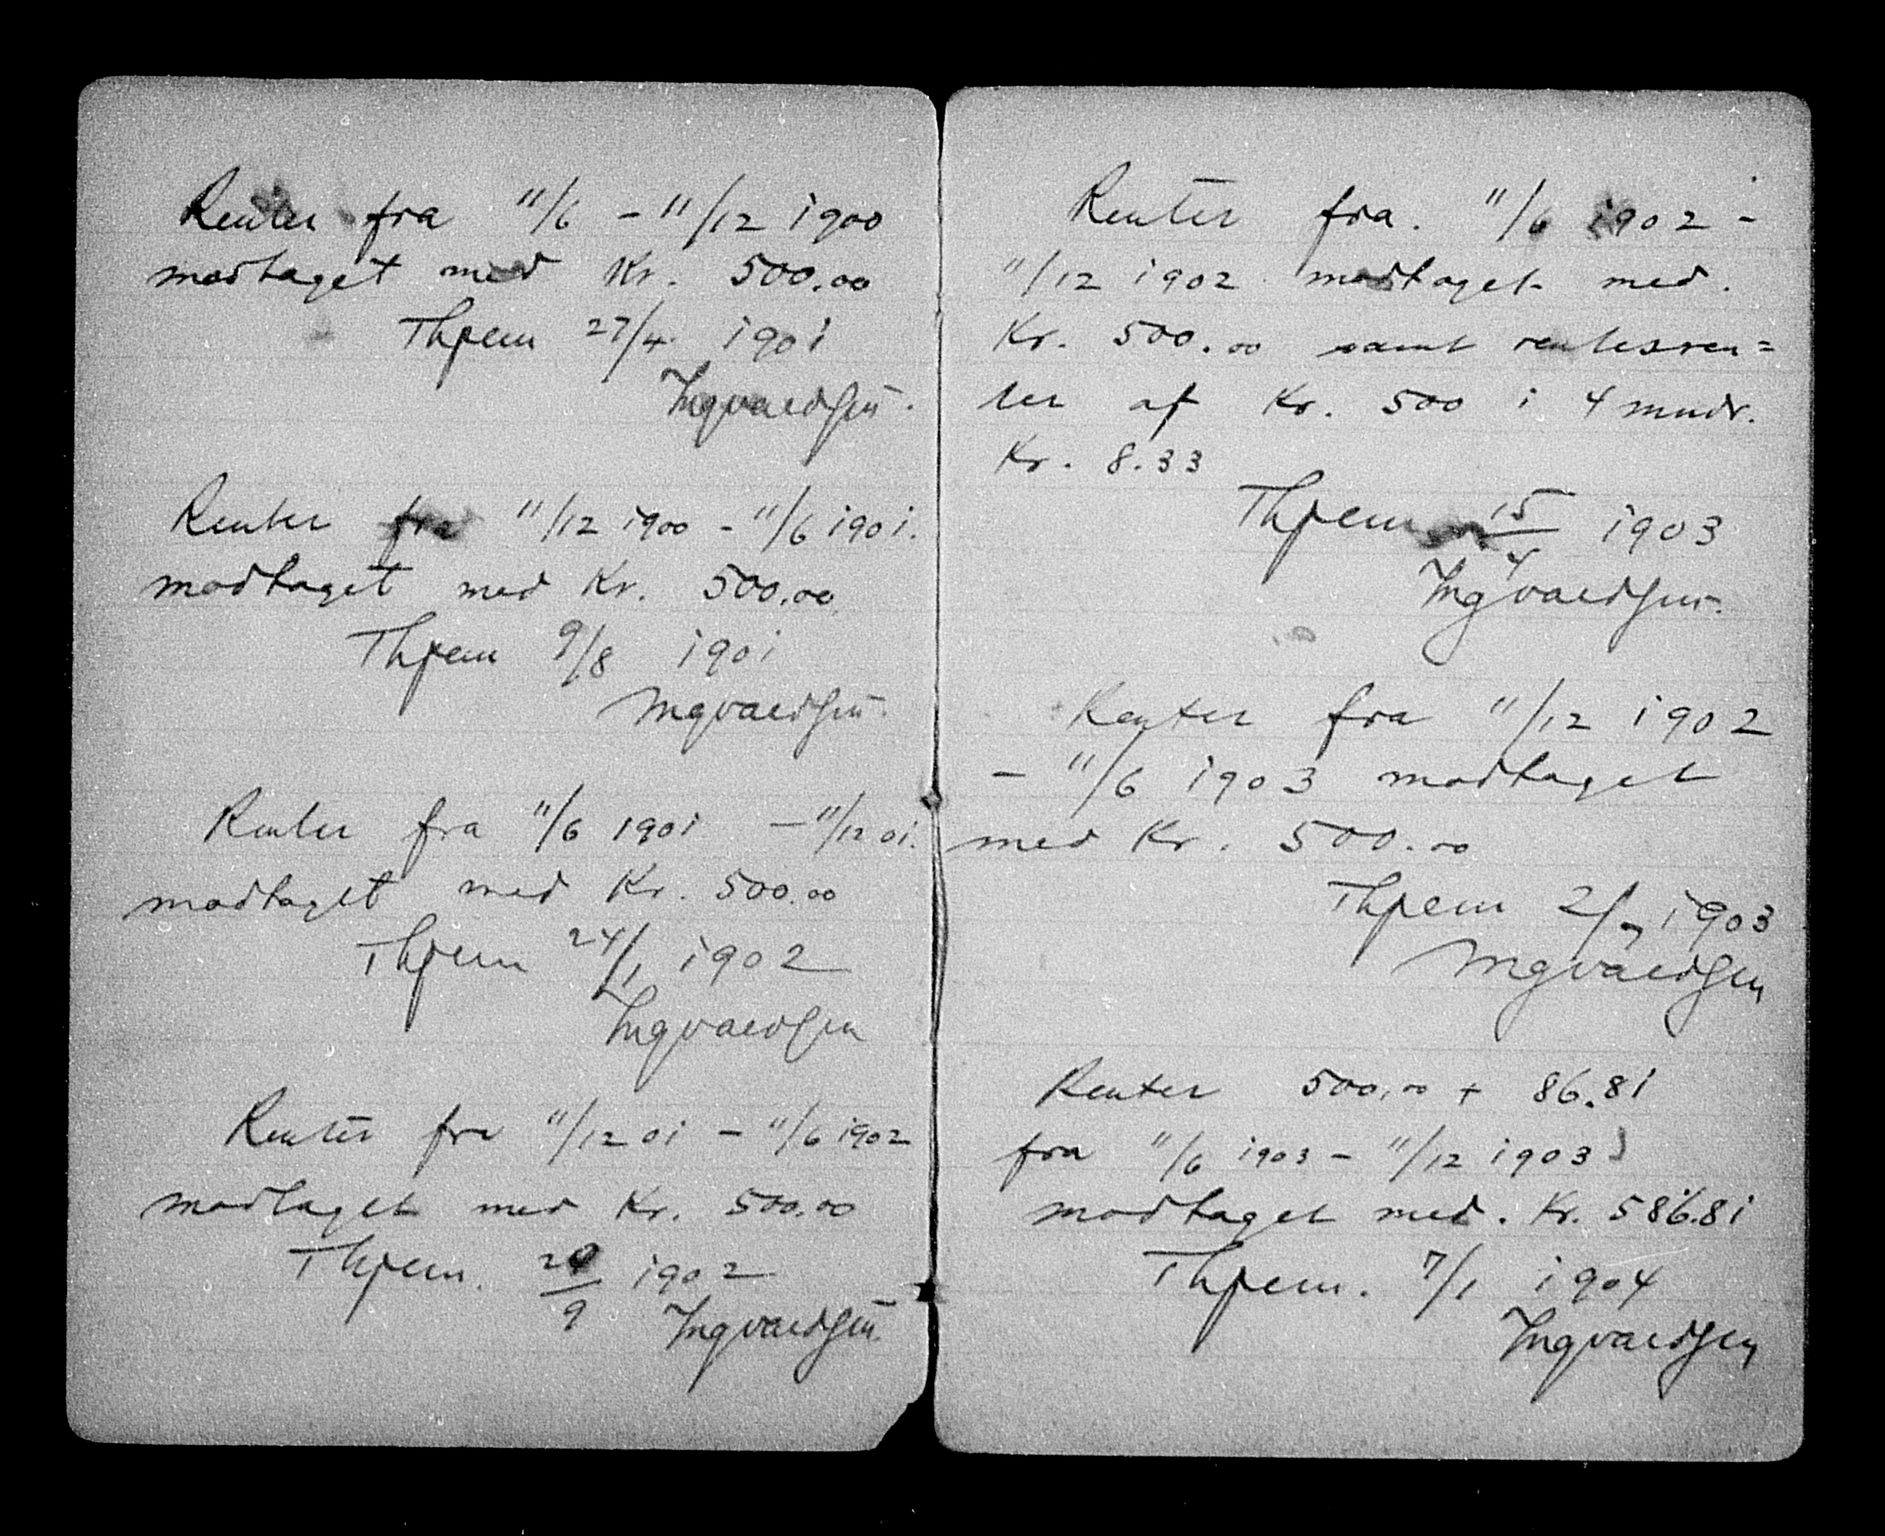 Renter fra 11/6 - 11/12 1900
modtaget med Kr. 500.00
Thjem 27/4 1901
Ingvaldsen.
Renter fra 11/12 1900 - 11/6 1901.
modtaget med Kr. 500.00
Thjem 9/8 1901
Ingvaldsen.
Renter fra 11/6 1901 - 11/12 01.
modtaget med Kr. 500.00
Thjem 24/1 1902
Ingvaldsen
Renter fra 11/12 01 - 11/6 1902
modtaget med Kr. 500.00
Thjem. 1902
9 Ingvaldsen
Renter fra. 11/6 1902 -
11/12 1902 modtaget med.
Kr. 500.00 samt rentesren=
ter af Kr. 500 i 4 mndr.
Kr. 8.33
Thjem 15/4 1903
Ingvaldsen.
Renter fra 11/12 1902
- 11/6 1903 modtaget
med Kr. 500.00
Thjem 2/7 1903
Ingvaldsen
Renter 500.00 + 86.81
fra 11/6 1903 - 11/12 1903
modtaget med. Kr. 586.81
Thjem. 7/1 1904
Ingvaldsen